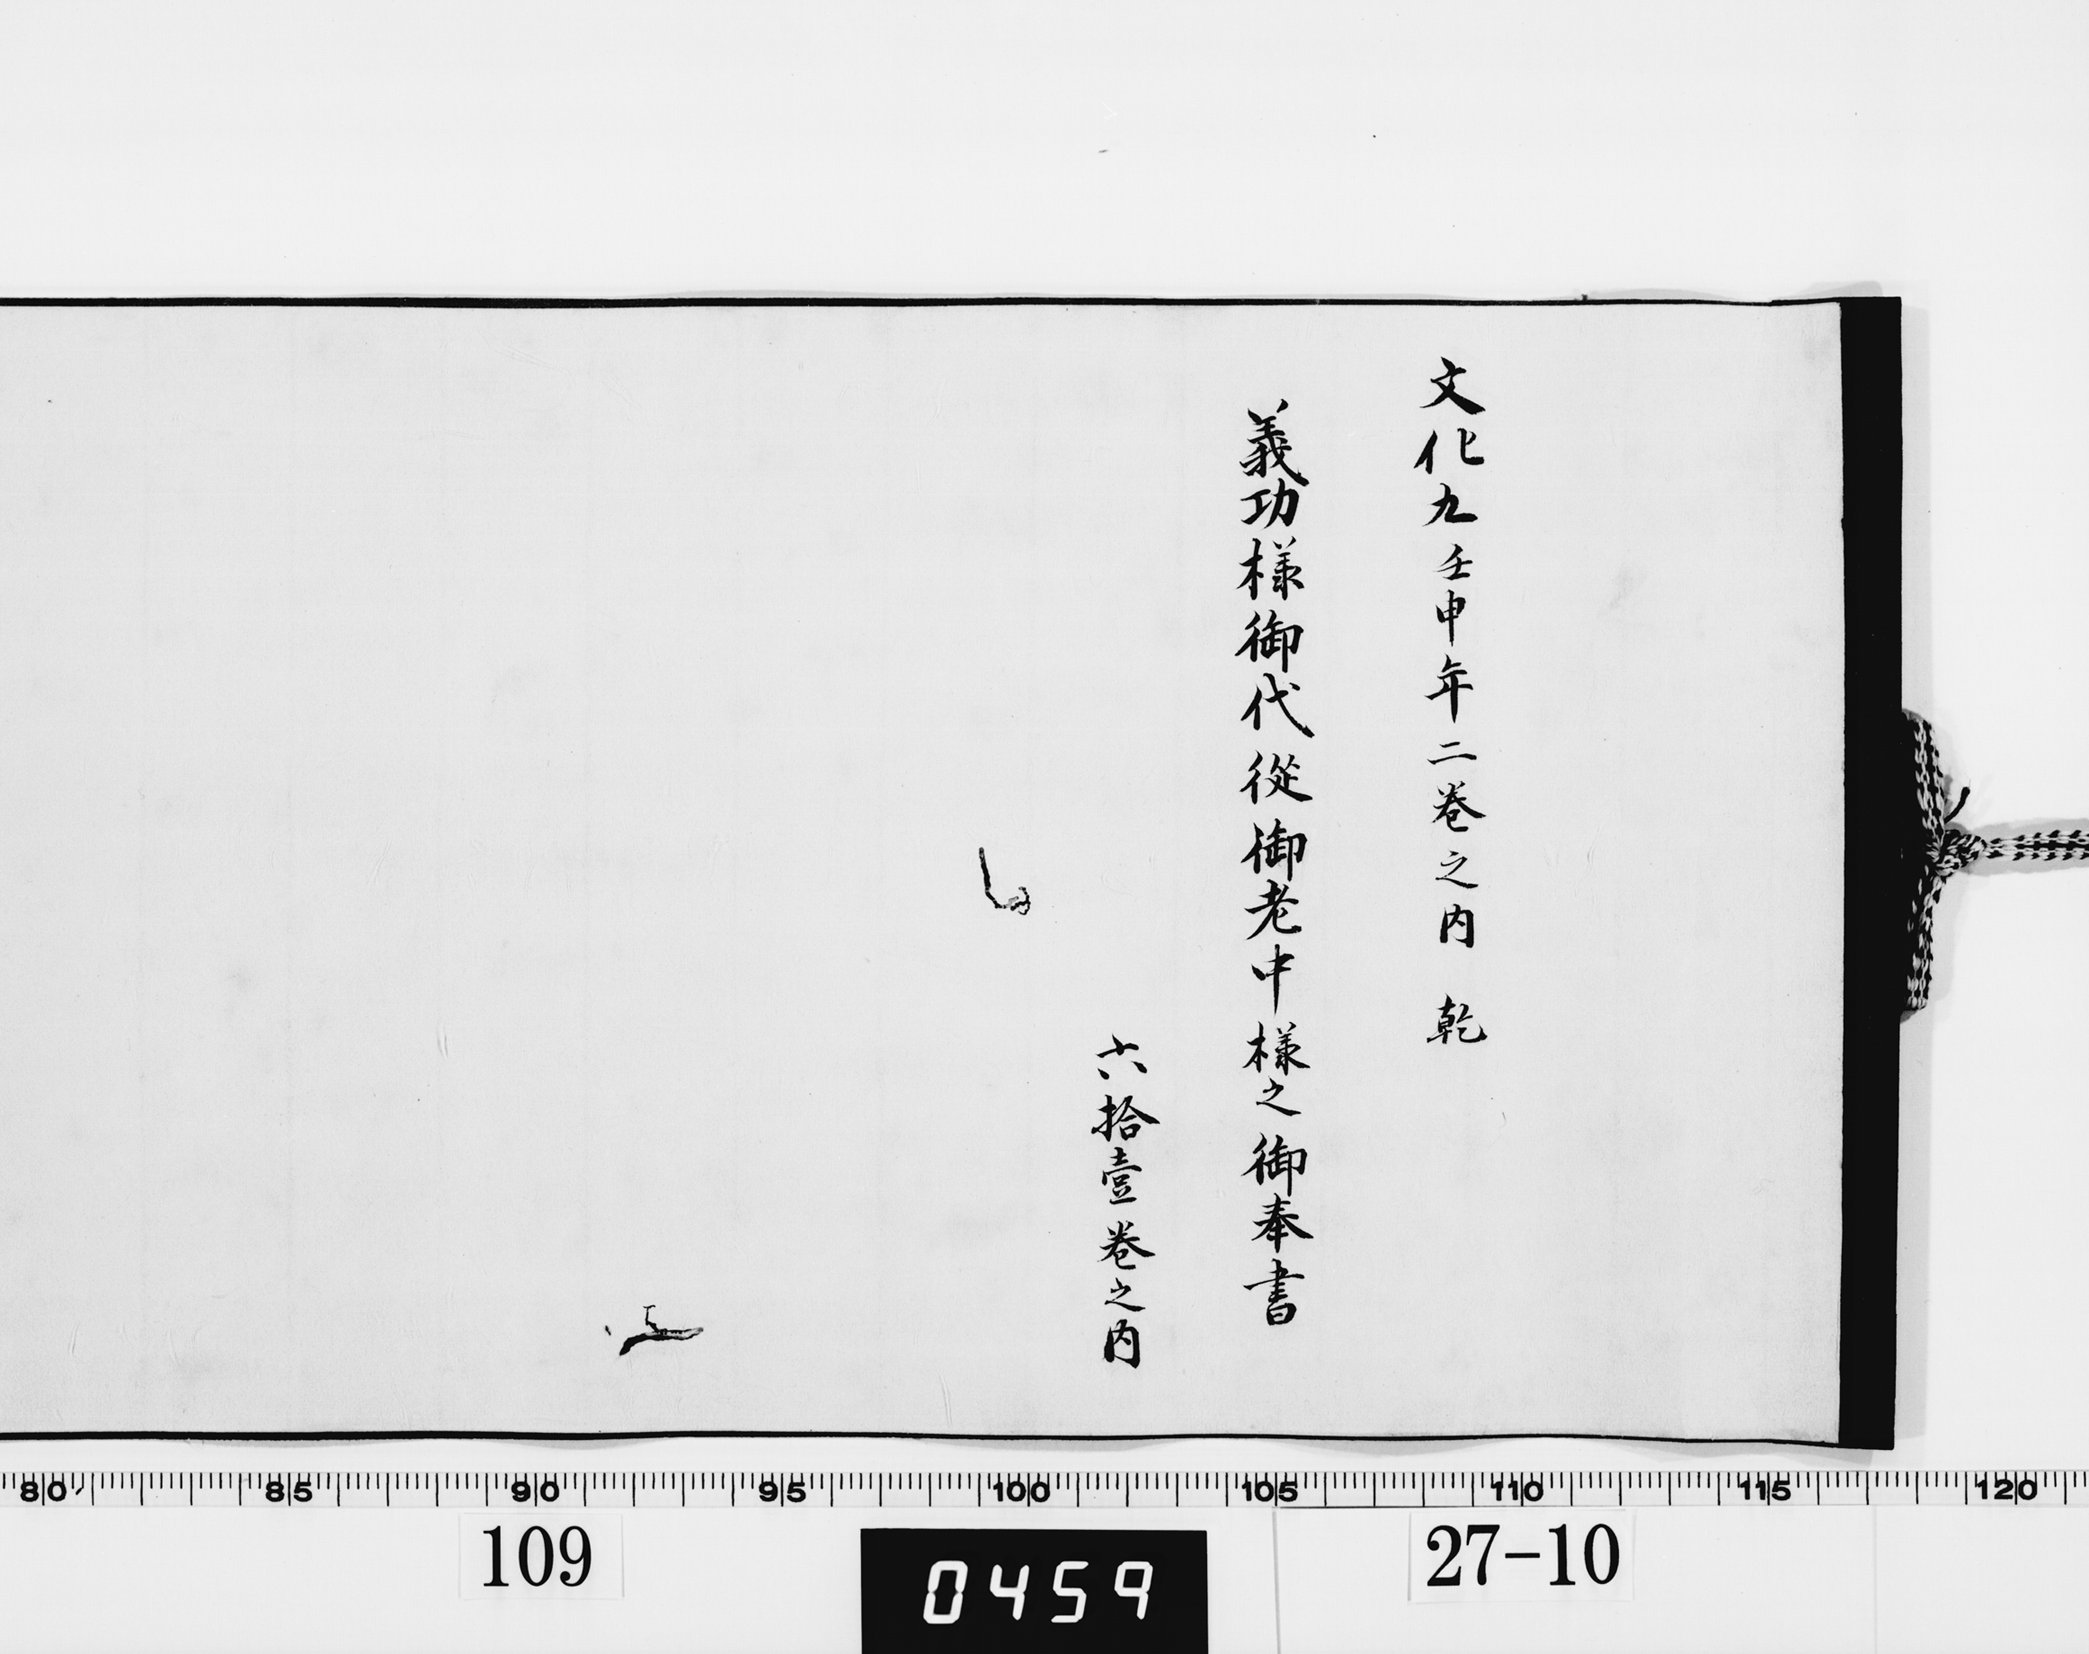 文化九壬申年二巻之内　乾
義功様御代従御老中様之御奉書
六拾壹巻之内
80 85 90 95 100 105 110 115 120
109
0459
27-10